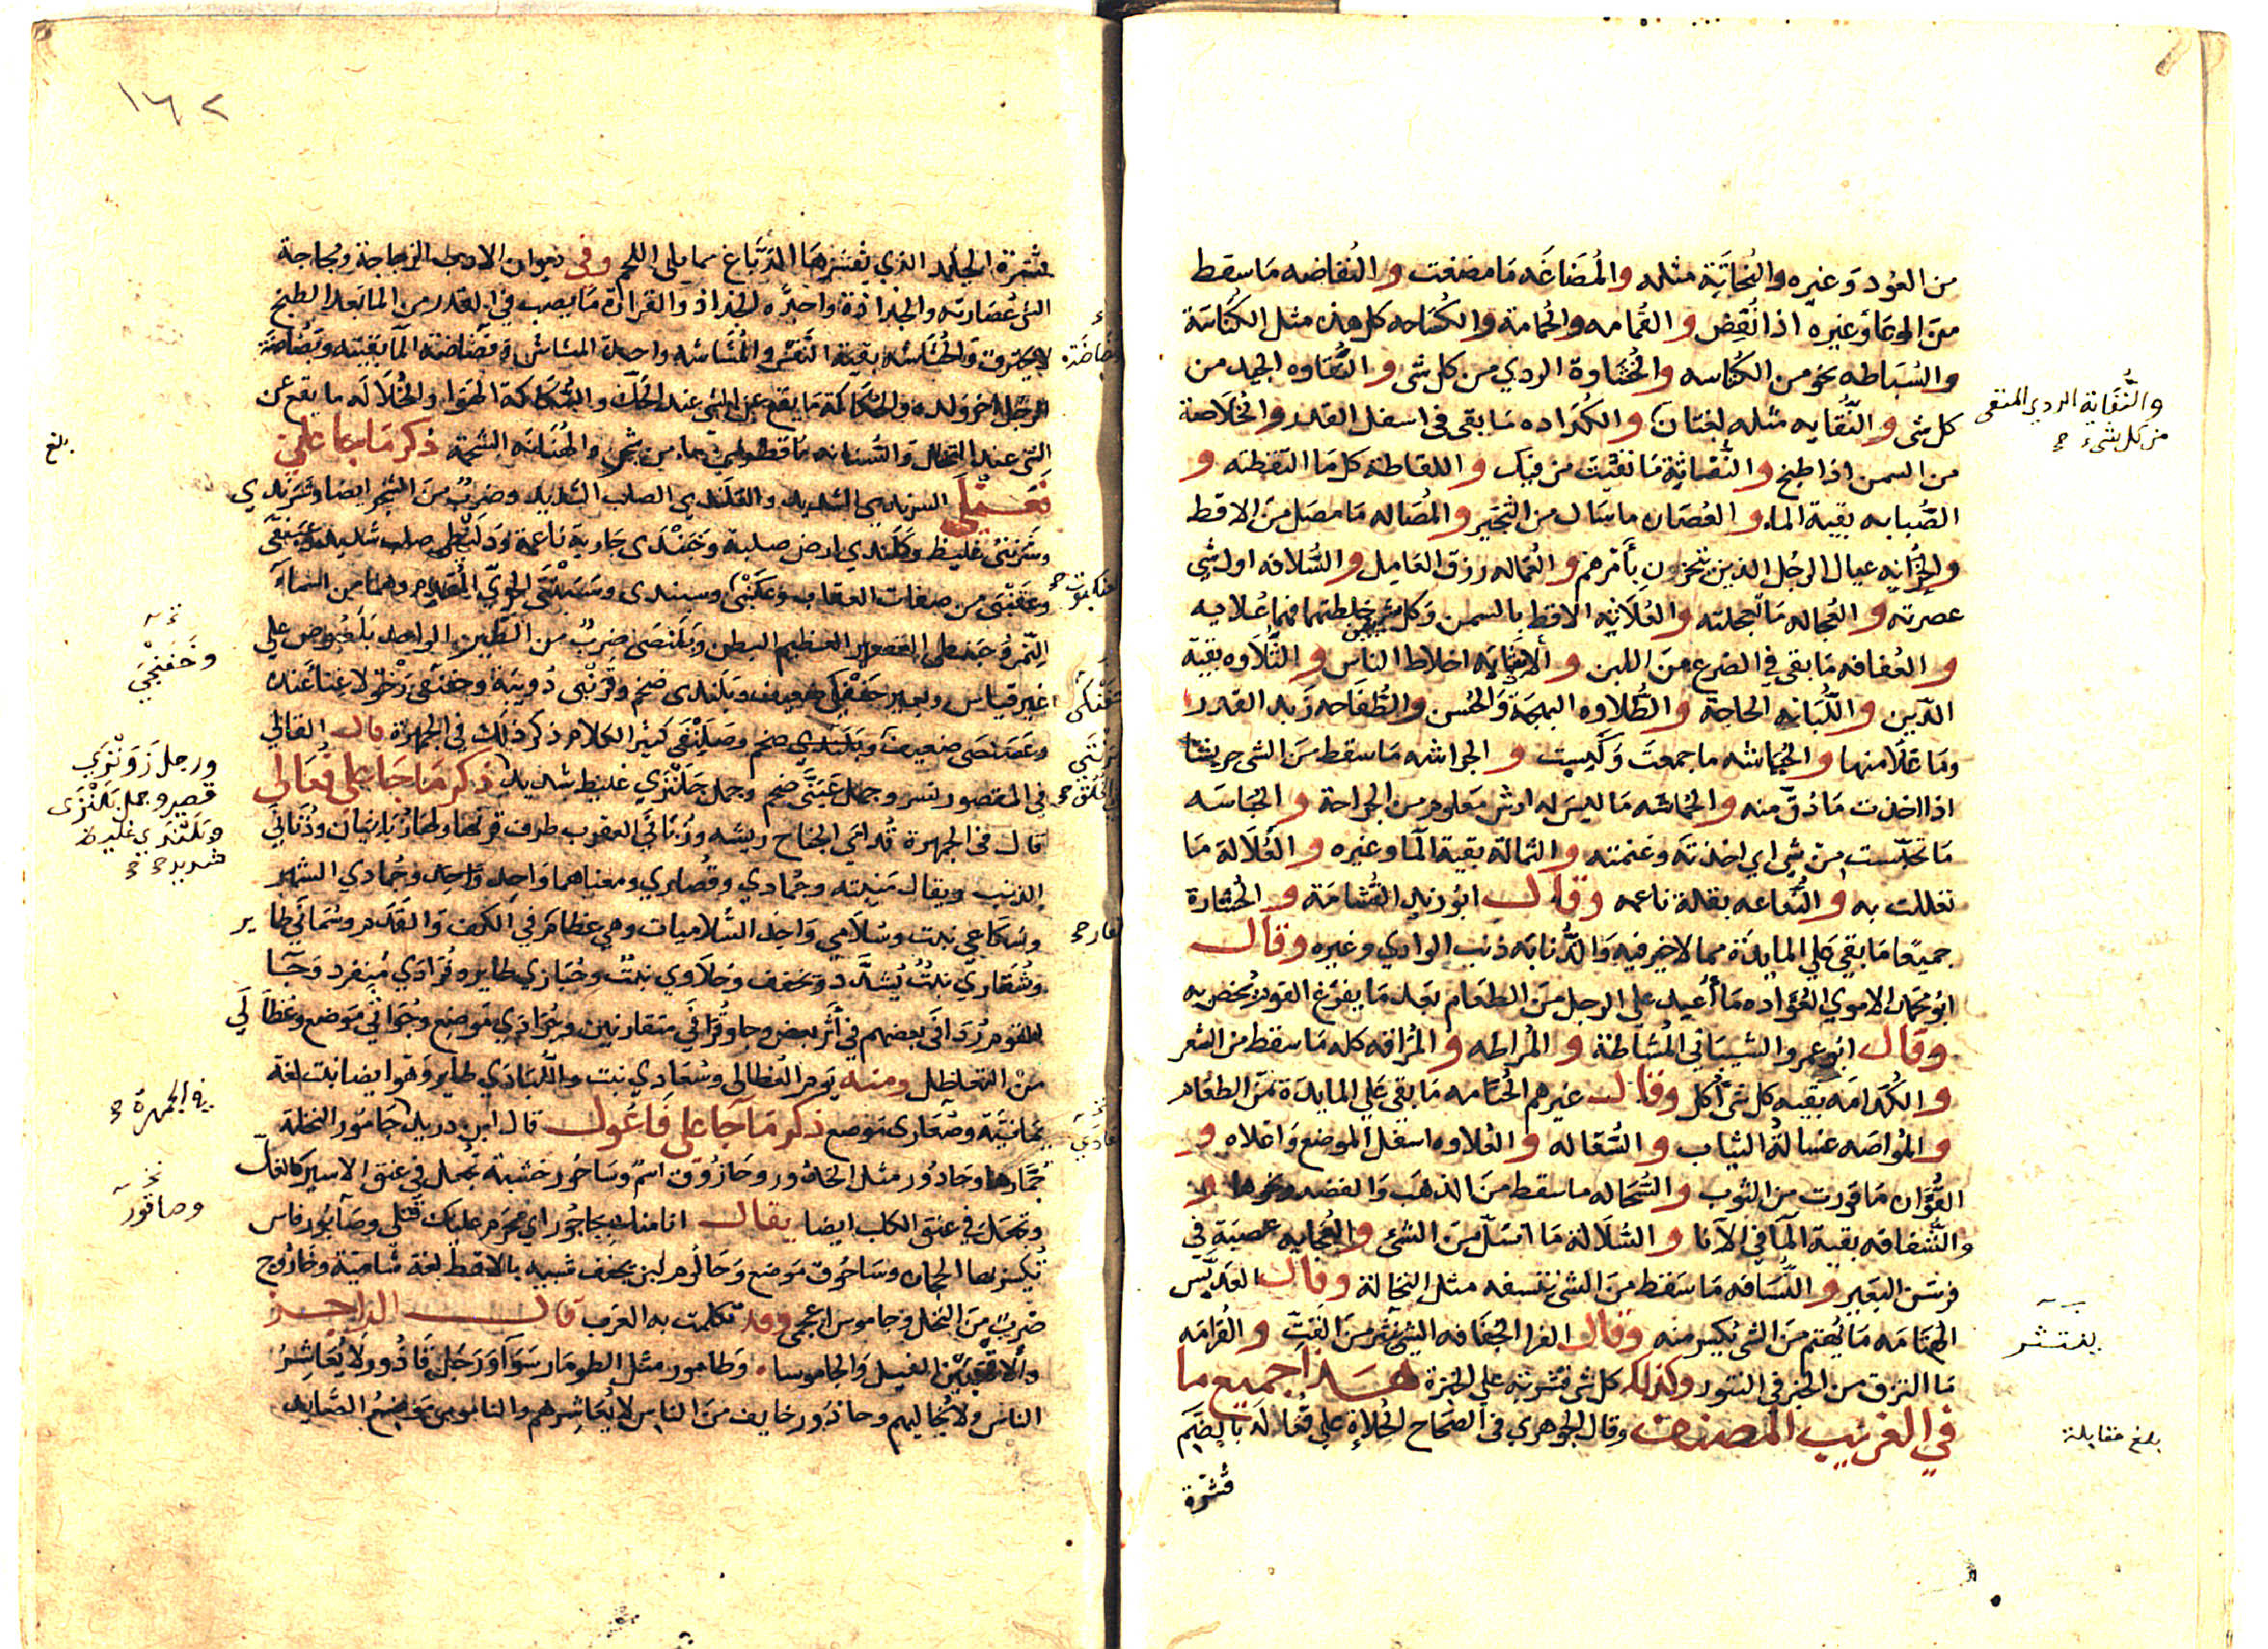 من العُود وَغيره والنُحَاتَة مثله والمُضَاغَه مَا مضغت والنُفاضه مَا سقط
من الوعَا وَغيره اذا نُفِض والقُمامه والخُمامة والكُسَاحه كل هذه مثل الكُنَاسَة
والسُبَاطه نحو من الكُناسه والخُشاوة الردي من كل شى والنُقَاوه الجيد من
كل شى والنُّقايه مثله لغتان والكُدَاده مَا بقى فى اسفل القدر والخُلَاصَة
من السمن اذا طبخ والنُّفَاثة مَا نفثت من فيك واللقاطة كل مَا التقطته و
الصُّبابه بقية الماء والعُصَاره ما سَال من الثَجِير والمُصَاله مَا مصَل من الاقط
والحُزانه عيال الرجُل الذين يتحزن بأمرهم والعُماله رزق العَامل والسُّلافه اول شى
عصرته والعُجاله مَا تعجلته والعُلَاثه الاقط بالسمن وَكل شيئين خلطتهما فهما عُلاثه
والعُفافه مَا بقى فى الضرع من اللبن والاُشابه اخلاط الناس والتُّلَاوه بقية
الدّين واللُّبَانه الحاجة والطُّلاوه البهجَة وَالحُسن والطُّفَاحه زَبد القدر
ومَا عَلَا منها والحُبَاشه ما جمعتَ وَكسبت والجراشه مَا سقط من الشى جريشًا
اذا اخذت مَا دُقّ منه والخُماشه مَا ليس له ارش مَعلوم من الجراحة والخُبَاسَه
مَا تخبّست من شى اي اخذتَه وَغنمته والثمالة بقية المآ وغيره والعُلَالَة مَا
تعللت به والنُّعَاعه بقلة ناعمه وقال ابُو زيد القُشَامَة والخُشارة
جميعًا مَا بقي على المايدَة مما لا خير فيه وَالذُّنابَه ذنَب الوادي وغيره وقال
ابُو محمد الاموي العُوَاده مَا أُعيد على الرجل من الطعَام بعد مَا يفرَغ القوم يُخصّ به
وقال ابُو عمرو الشيبَانى المُشَاطة والمُراطه والمُراقه كله مَا سقط من الشعر
والكُدَامَه بقيه كل شى أُكل وقال غيرهم الحُتَامه مَا بقى على المايدَة من الطعَام
والمُوَاصَه غُسَالَة الثياب والسُّفاله والعُلاوه اسفل الموضع وَاعلاه و
القُوَاره مَا قورت من الثوب والسُّحَاله ما سقط من الذهَب وَالفضه ونحوها و
والشُّفافه بقية المآ فى الانا والسُّلَالة مَا انسَلّ من الشئ والعُجَايه عصبَة فى
فرسَن البَعير والنُّسَافه مَا سَقط من الشى تنسفه مثل النخالة وقال العَدبّس
الهُتَامَه مَا تهتّم من الشى يُكسر منه وقال الفرا الجُفَافه الشى ينثر من القتّ والقُرامَه
مَا التزق من الخبز فى التنور وكذلك كل شى قشرته على الخبزة هذا جميع ما
في الغريب المصنف وقال الجوهري فى الصحَاح الحُلَاءة على فُعَالَة بالضّم
قشرة
والنُّقَاية الردي المنقى
من كل شىء
ينتثر
بلغ مقابلة
١٦٢
قشرة الجلد الذي يقشرهَا الدَبَّاغ مما يلى اللحم وفى ديوان الادب الزجاجة ومُجاجة
الشى عُصَارته والجُذاذة واحدَه الجذاذ والقرارَة مَا يصب في القدر من الما بَعد الطبخ
لا يحترق وَالحُشَاشَه بقية النَّفس والمُشَاشَه واحدة المشاش وَنُضَاضَة المآ بَقيته ونُضَاضَة
الرجُل اخر وَلده والحُكَاكَة مَا يقع عن الشى عند الحكّ والسُّكَاكَة الهَوا والخُلَالَه ما يقع عن
الشى عند التخلل وَالشنانه مَا قطر من مآ من شجر والهُنَانَه الشحمة ذكر مَا جَا على
فَعَنْلَى السرندى الشديد والعَلَندى الصلب الشديد وضربٌ من الشجر ايضًا وشَرَندي
وشَرَنثى غليظ وكَلَندى ارض صلبة وخَبَنْدى جَارية نَاعمة وَدلَنظَى صلب شديد وعَبَنقَى
وعَقَنبى من صفات العقاب وَعَكَنْبَى وسبندى وسَبَنْتَى الجريّ المُقدم وهما من اسمآ
النّمر وَحبَنطَى القصير العظيم البطن وبَلَنصَى ضربٌ من الطَّير الواحد بَلَصُوص على
غير قياس وبعير حَفَنْكى ضعيف وبَلَندى ضخم وقَرَنْبَى دُويبَة وحفَنقَى رَخْو لا غنآ عنده
وعَصَنصَى ضعيف وبَلَندى ضخم وصَلَنْقَى كثير الكلام ذكر ذلك في الجمهرَة قال القالي
فى المقصور نسر وجمل عَبَنَّى ضخم وجمل جَلَنْزَي غليظ شديد ذكر مَا جَا على فُعَالى
قال فى الجمهرة قُدَامَى الجناح ريشه وزُبَانَى العقرب طرف قرنها ولهَا زُبَانَيَان وذُنَابَى
الذنب ويقال مَنبته وحُمَادي وقُصَاري ومعناهما وَاحد وجُمَادي الشهر
وسُكَاعَى نبت وسُلَامى وَاحد السُّلَاميات وهى عظام فى الكف وَالقدَم وسُمَانَى طاير
وشُقَاري نبت يُشدَّد وَيخفف وحُلَاوي نبت وحُبَارَي طاير وفُرَادَي منفرد وَجآ
القوم رُدَافَى بعضهم فى أثَر بعض وجاوا قُرَانَى متقارنين وحُرَادَي مَوضع وجُوَانَى مَوضع وعُظَالَى
من التعاظل ومنه يَوم العُظالى وسُعَادي نبت واللُّبَادَي طاير وهو ايضًا نبت لغة
يمانيَّة وصُعَارى مَوضع ذكر مَا جَا على فَاعُول قال ابن دريد جَامُور النخلة
جُمَّارها وحَادُور مثل الحَدُور وحَازُوق اسم وسَاجُور خشبة تجعل فى عنق الاسير كالغل
وتجعَل في عنق الكلب ايضا يقال انا منك بحاجُور اي محرم عليك قتلي وصَاقُور فاس
تُكسر بها الحجَارة وسَاحُوق مَوضع وَحَالُوم لبن يجفف شبيه بالاقط لغة شامية وخَارُوج
ضربٌ من النخل وجاموس اعجمي وقد تكلمت به العَرب قال الراجز
والاقهَبَيْن الفيل والجاموسا وَطامور مثل الطومَار سَوآ وَرَجُل قَاذُور لا يُعَاشِرُ
الناس ولا يُخاليهم وحاذور خايف من الناس لا يُعَاشِرهم والناموس مَوضعُ الصَّايد
بلغ
وخَفَنْجَى
ورجل زَوَنْزَي
قصير وجمل بَلَنْزَى
وبَلَنْدَي غليظ
شديد
فى الجمهرة
وصاقور